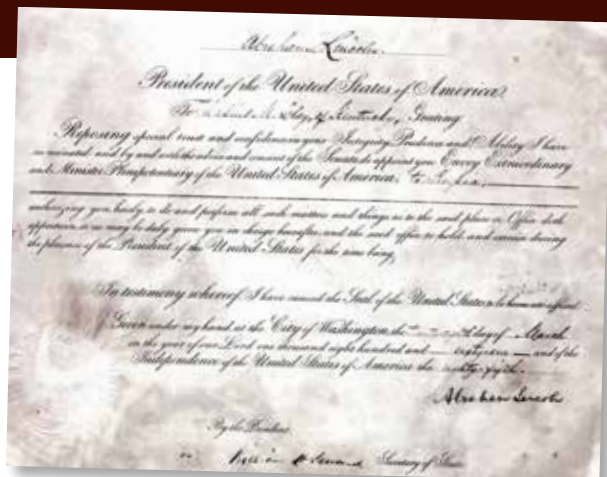 Abraham Lincoln
President of the United States of America
To Clay, of Kentucky, Greeting
Reposing special trust and confidence in your Integrity Prudence and Ability I have
nominated and by and with the advice and consent of the Senate do appoint you Envoy Extraordinary
and Minister Plenipotentiary of the United States of America, to Russia,
authorizing you hereby to do and perform all such matters and things as to the said place or Office doth
appertain or as may be duly given you in charge hereafter, and the said office to hold and exercise during
the pleasure of the President of the United States for the time being,
In testimony whereof, I have caused the Seal of the United States to be hereunto affixed
Given under my hand at the City of Washington the day of March
in the year of our Lord one thousand eight hundred and and of the
Independence of the United States of America the eighty-fifth
Abraham Lincoln
By the President
Seward Secretary of State